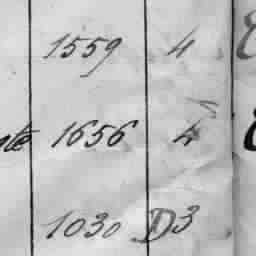 1559 4
1656 4
1030 D3